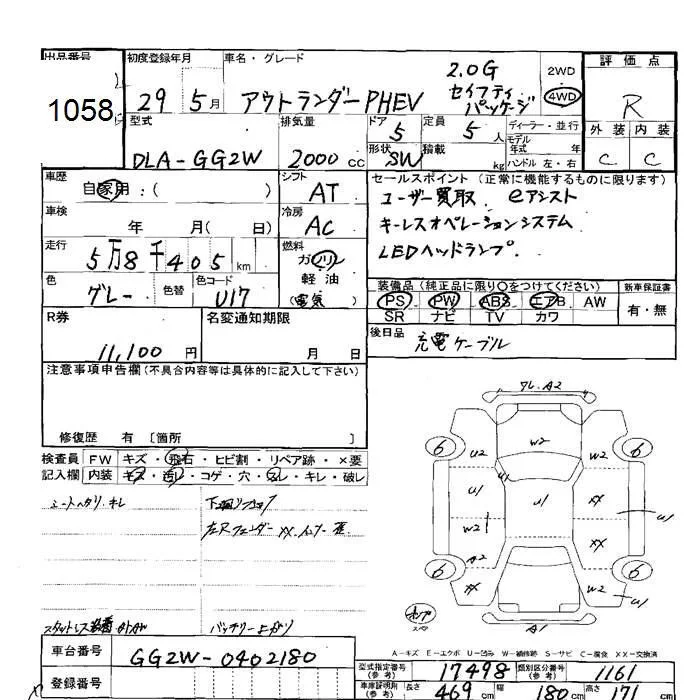 出品番号
1058
初度登録年月
29 5月
車名・グレード
アウトランダーPHEV
2.0G
セイフティ
パッケージ
2WD
4WD
評価点
R
型式
DLA-GG2W
排気量
2000 cc
ドア
5
定員
5人
形状
SW
積載
kg
ディーラー・並行
モデル
年式 年
ハンドル 左・右
外装 内装
C C
車歴
自家用:( )
シフト
AT
セールスポイント(正常に機能するものに限ります)
ユーザー買取 eアシスト
キーレスオペレーションシステム
LEDヘッドランプ.
車検
年 月( 日)
冷房
AC
走行
5万8千405km
燃料
ガソリン
軽油
(電気)
色
グレー
色替
色コード
U17
装備品(純正品に限り○をつけてください)
新車保証書
PS PW ABS エアB AW
SR ナビ TV カワ
有・無
R券
11,100円
名変通知期限
月 日
後日品
充電ケーブル
注意事項申告欄(不具合内容等は具体的に記入して下さい)
修復歴 有 〔箇所 〕
検査員 FW キズ・飛石・ヒビ割・リペア跡・×要
記入欄 内装 キズ・汚レ・コゲ・穴・スレ・キレ・破レ
シートヘタリ.キレ
バッテリー上がり
ワレ.A2
6 6
U2 W2 W2
U1 U1 XX
U1
W2 XX
A2
6 6
XX W2
U1
A1
A-キズ E-エクボ U-凹み W-補修跡 S-サビ C-腐食 XX-交換済
車台番号
GG2W-0402180
登録番号
型式指定番号
(参考)
17498
類別区分番号
(参考)
1161
車庫証明用
(参考)
長さ
469 cm
幅
180 cm
高さ
171 cm